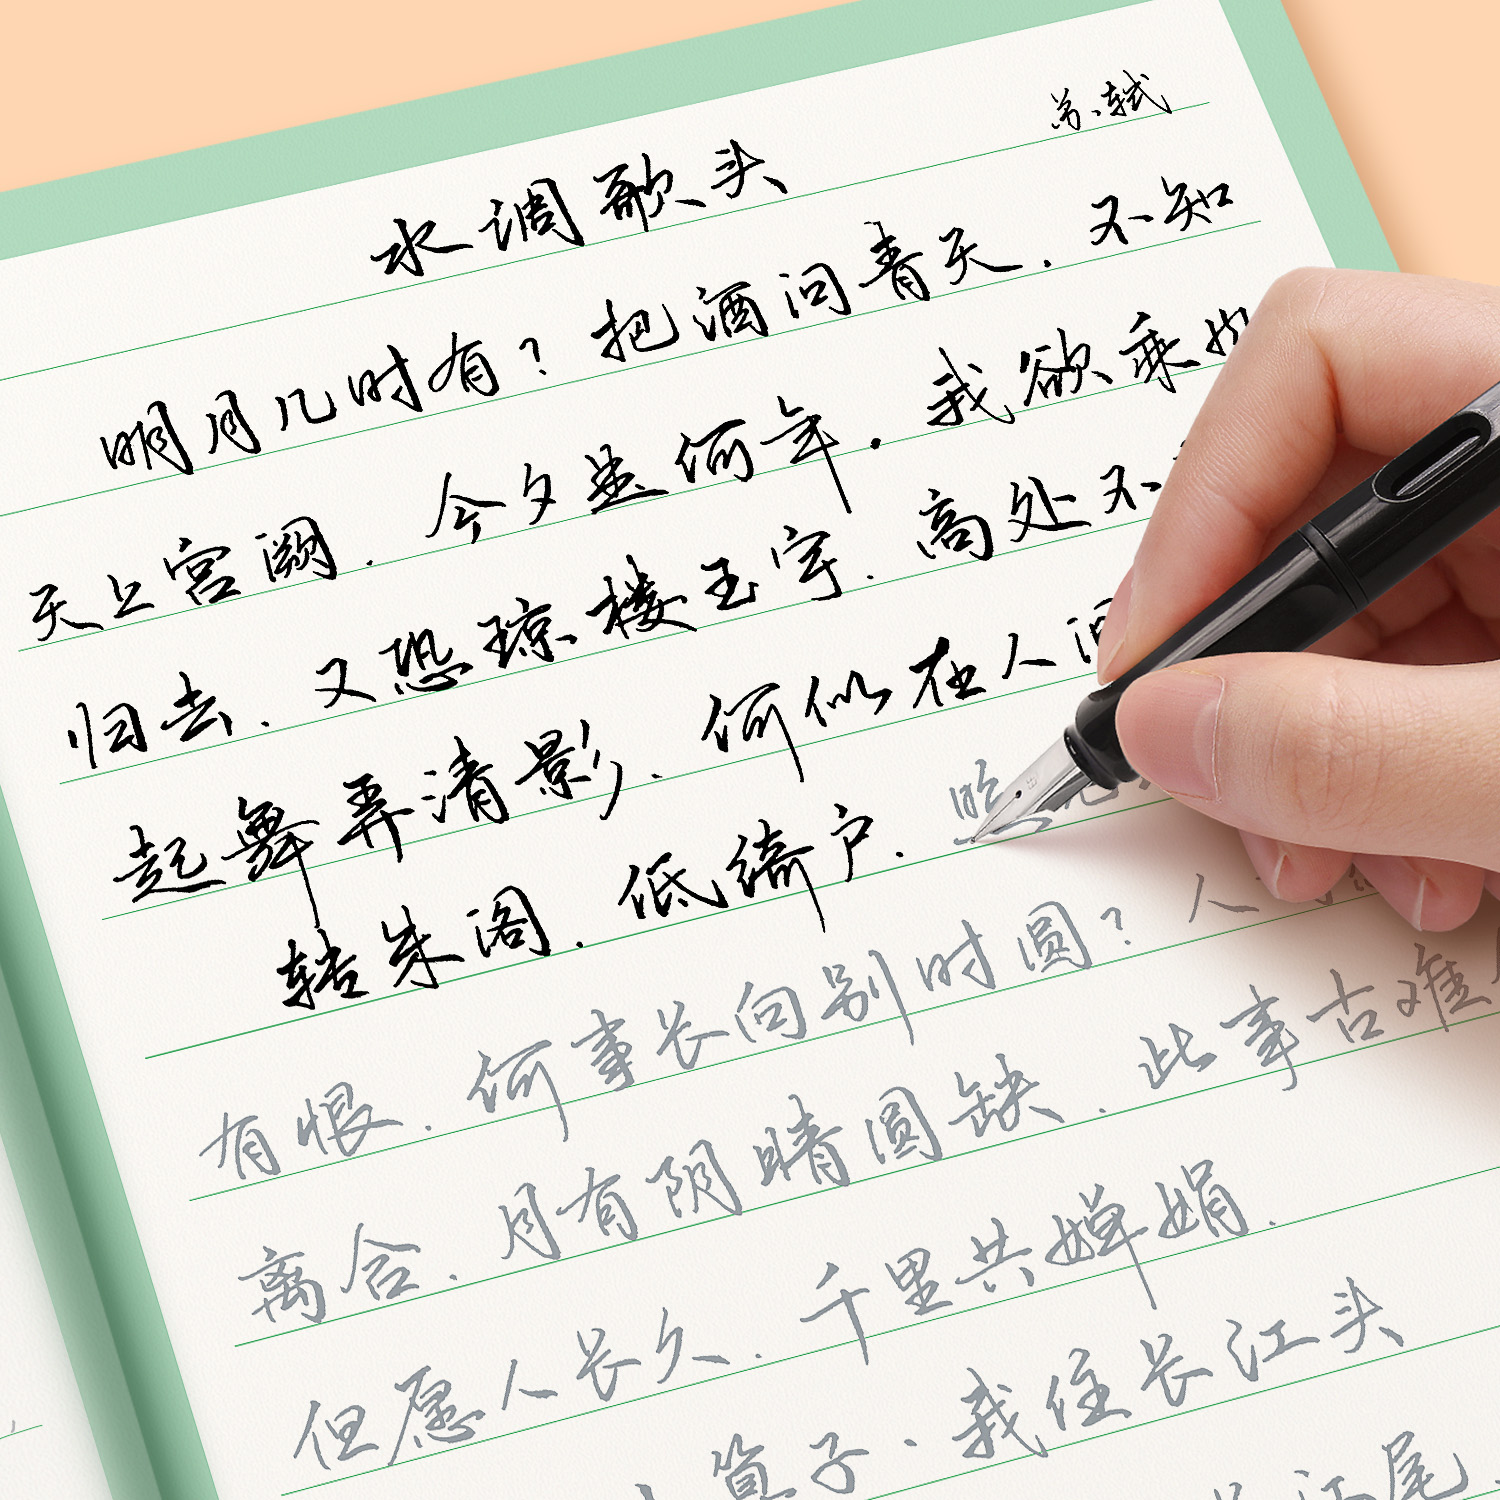 苏轼
水调歌头
明月几时有?把酒问青天.不知
天上宫阙.今夕是何年.我欲乘
归去.又恐琼楼玉宇.高处不
起舞弄清影.何似在人间
转朱阁.低绮户.照无
有恨.何事长向别时圆?人
离合.月有阴晴圆缺.此事古难
但愿人长久.千里共婵娟.
卜算子·我住长江头
长江尾